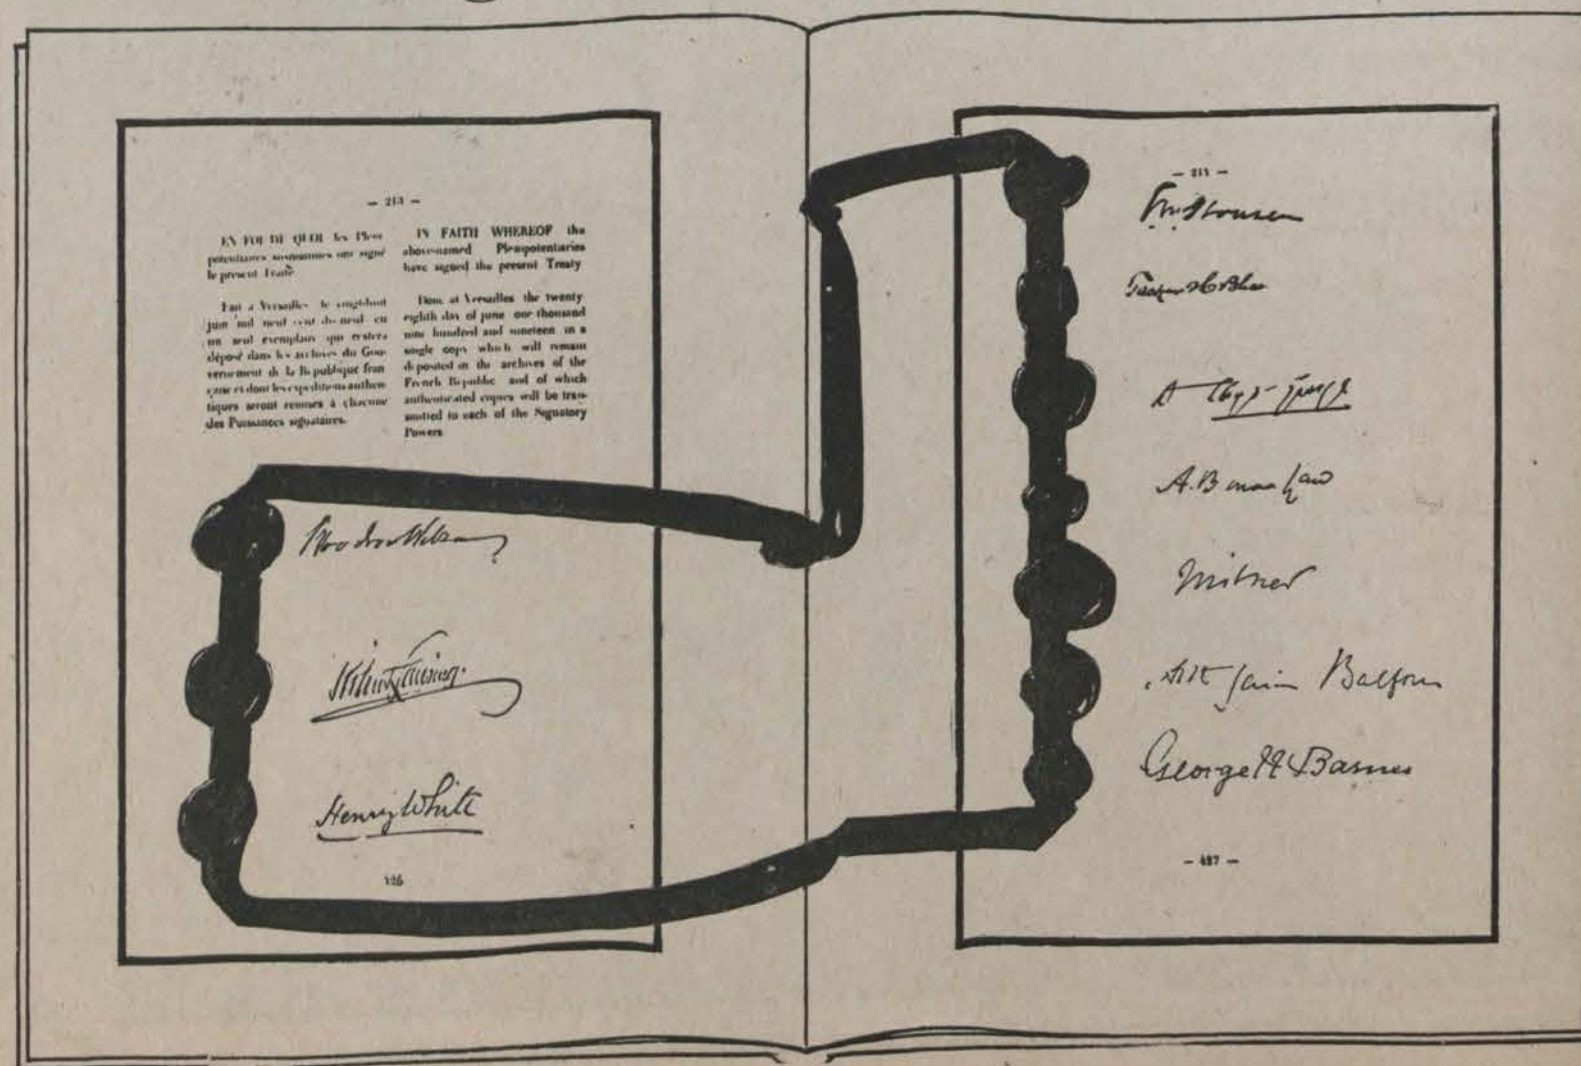 — 213 —
EN FOI DE QUOI les Pleni
potentiaires susnommés ont signé
le present Traité
Fait a Versailles le vingt-huit
juin mil neuf cent dix-neuf en
un seul exemplaire qui restera
déposé dans les archives du Gou-
vernement de la République fran
çaise et dont les expéditions authen
tiques seront remises à chacune
des Puissances signataires.
IN FAITH WHEREOF the
above-named Plenipotentiaries
have signed the present Treaty
Done at Versailles the twenty
eighth day of june one thousand
nine hundred and nineteen in a
single copy which will remain
deposited in the archives of the
French Republic and of which
authenticated copies will be trans-
mitted to each of the Signatory
Powers
Woodrow Wilson
Henry White
— 214 —
A. Bonar Law
Milner
Balfour
George N Barnes
— 427 —